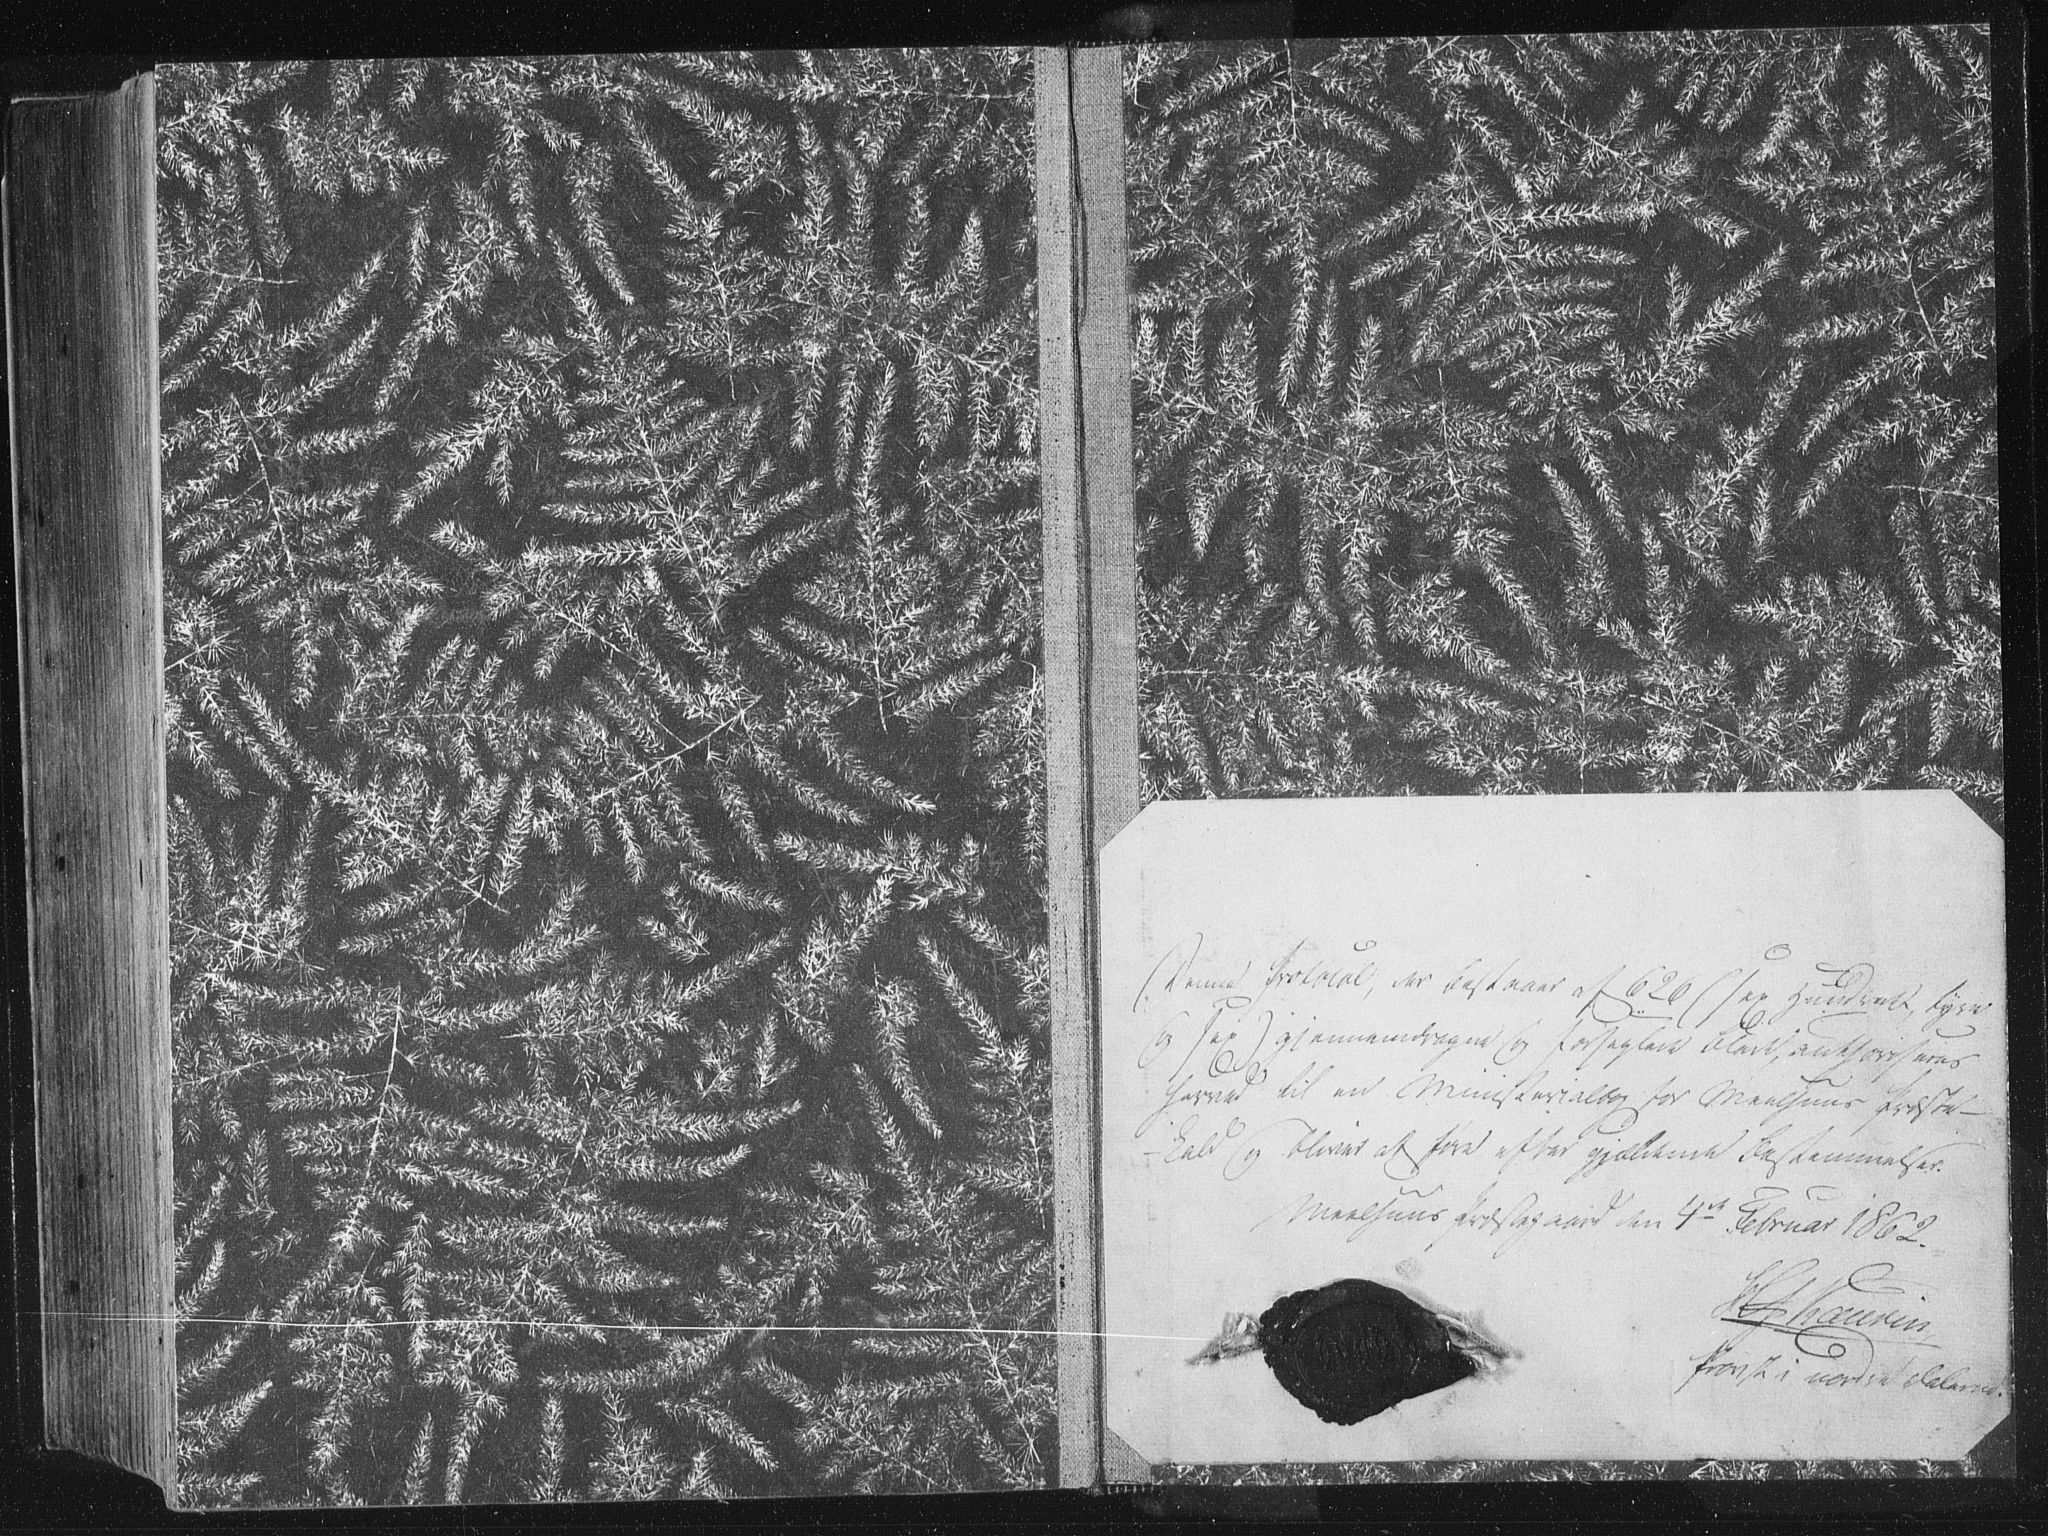 Denne Protocol, der bestaaer af 626 (sex Hundrede, tyve
og sex) gjennemdragne og forseglede Blade, authoriseres
herved til en Ministerialbog for Meelhuus Præste-
-kald og bliver at føre efter gjældende Bestemmelser.
Meelhuus Præstegaard den 4de Februar 1862.
Kaurin,
Provst i nordre Dalerne.